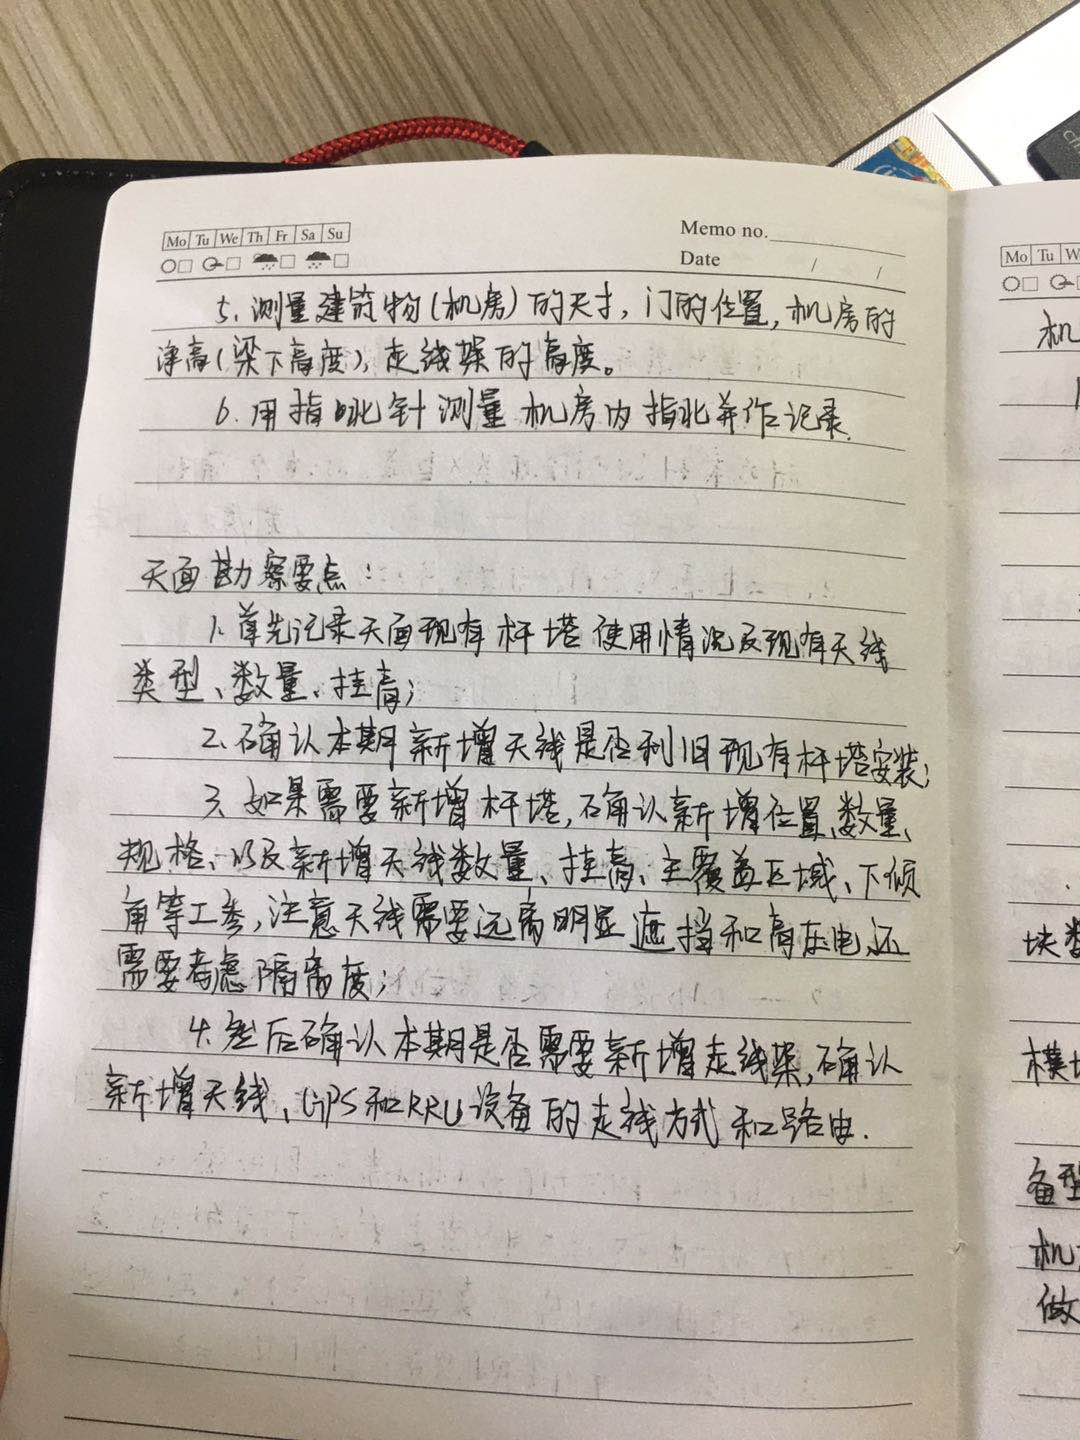 Mo Tu We Th Fr Sa Su
Memo no.
Date / /
5.测量建筑物(机房)的尺寸,门的位置,机房的
净高(梁下高度),走线架的高度。
6.用指北针测量机房内指北并作记录.
天面勘察要点:
1.首先记录天面现有杆塔使用情况及现有天线
类型、数量、挂高;
2.确认本期新增天线是否利旧现有杆塔安装;
3.如果需要新增杆塔,确认新增位置、数量、
规格、以及新增天线数量、挂高、主覆盖区域、下倾
角等工参,注意天线需要远离明显遮挡和高压电,还
需要考虑隔离度;
4.然后确认本期是否需要新增走线架,确认
新增天线、GPS和RRU设备的走线方式和路由.
Mo Tu W
机
块数
模块
备型
机
做